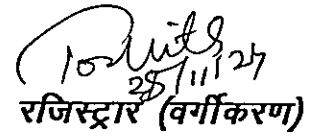 28/11/24
रजिस्ट्रार (वर्गीकरण)